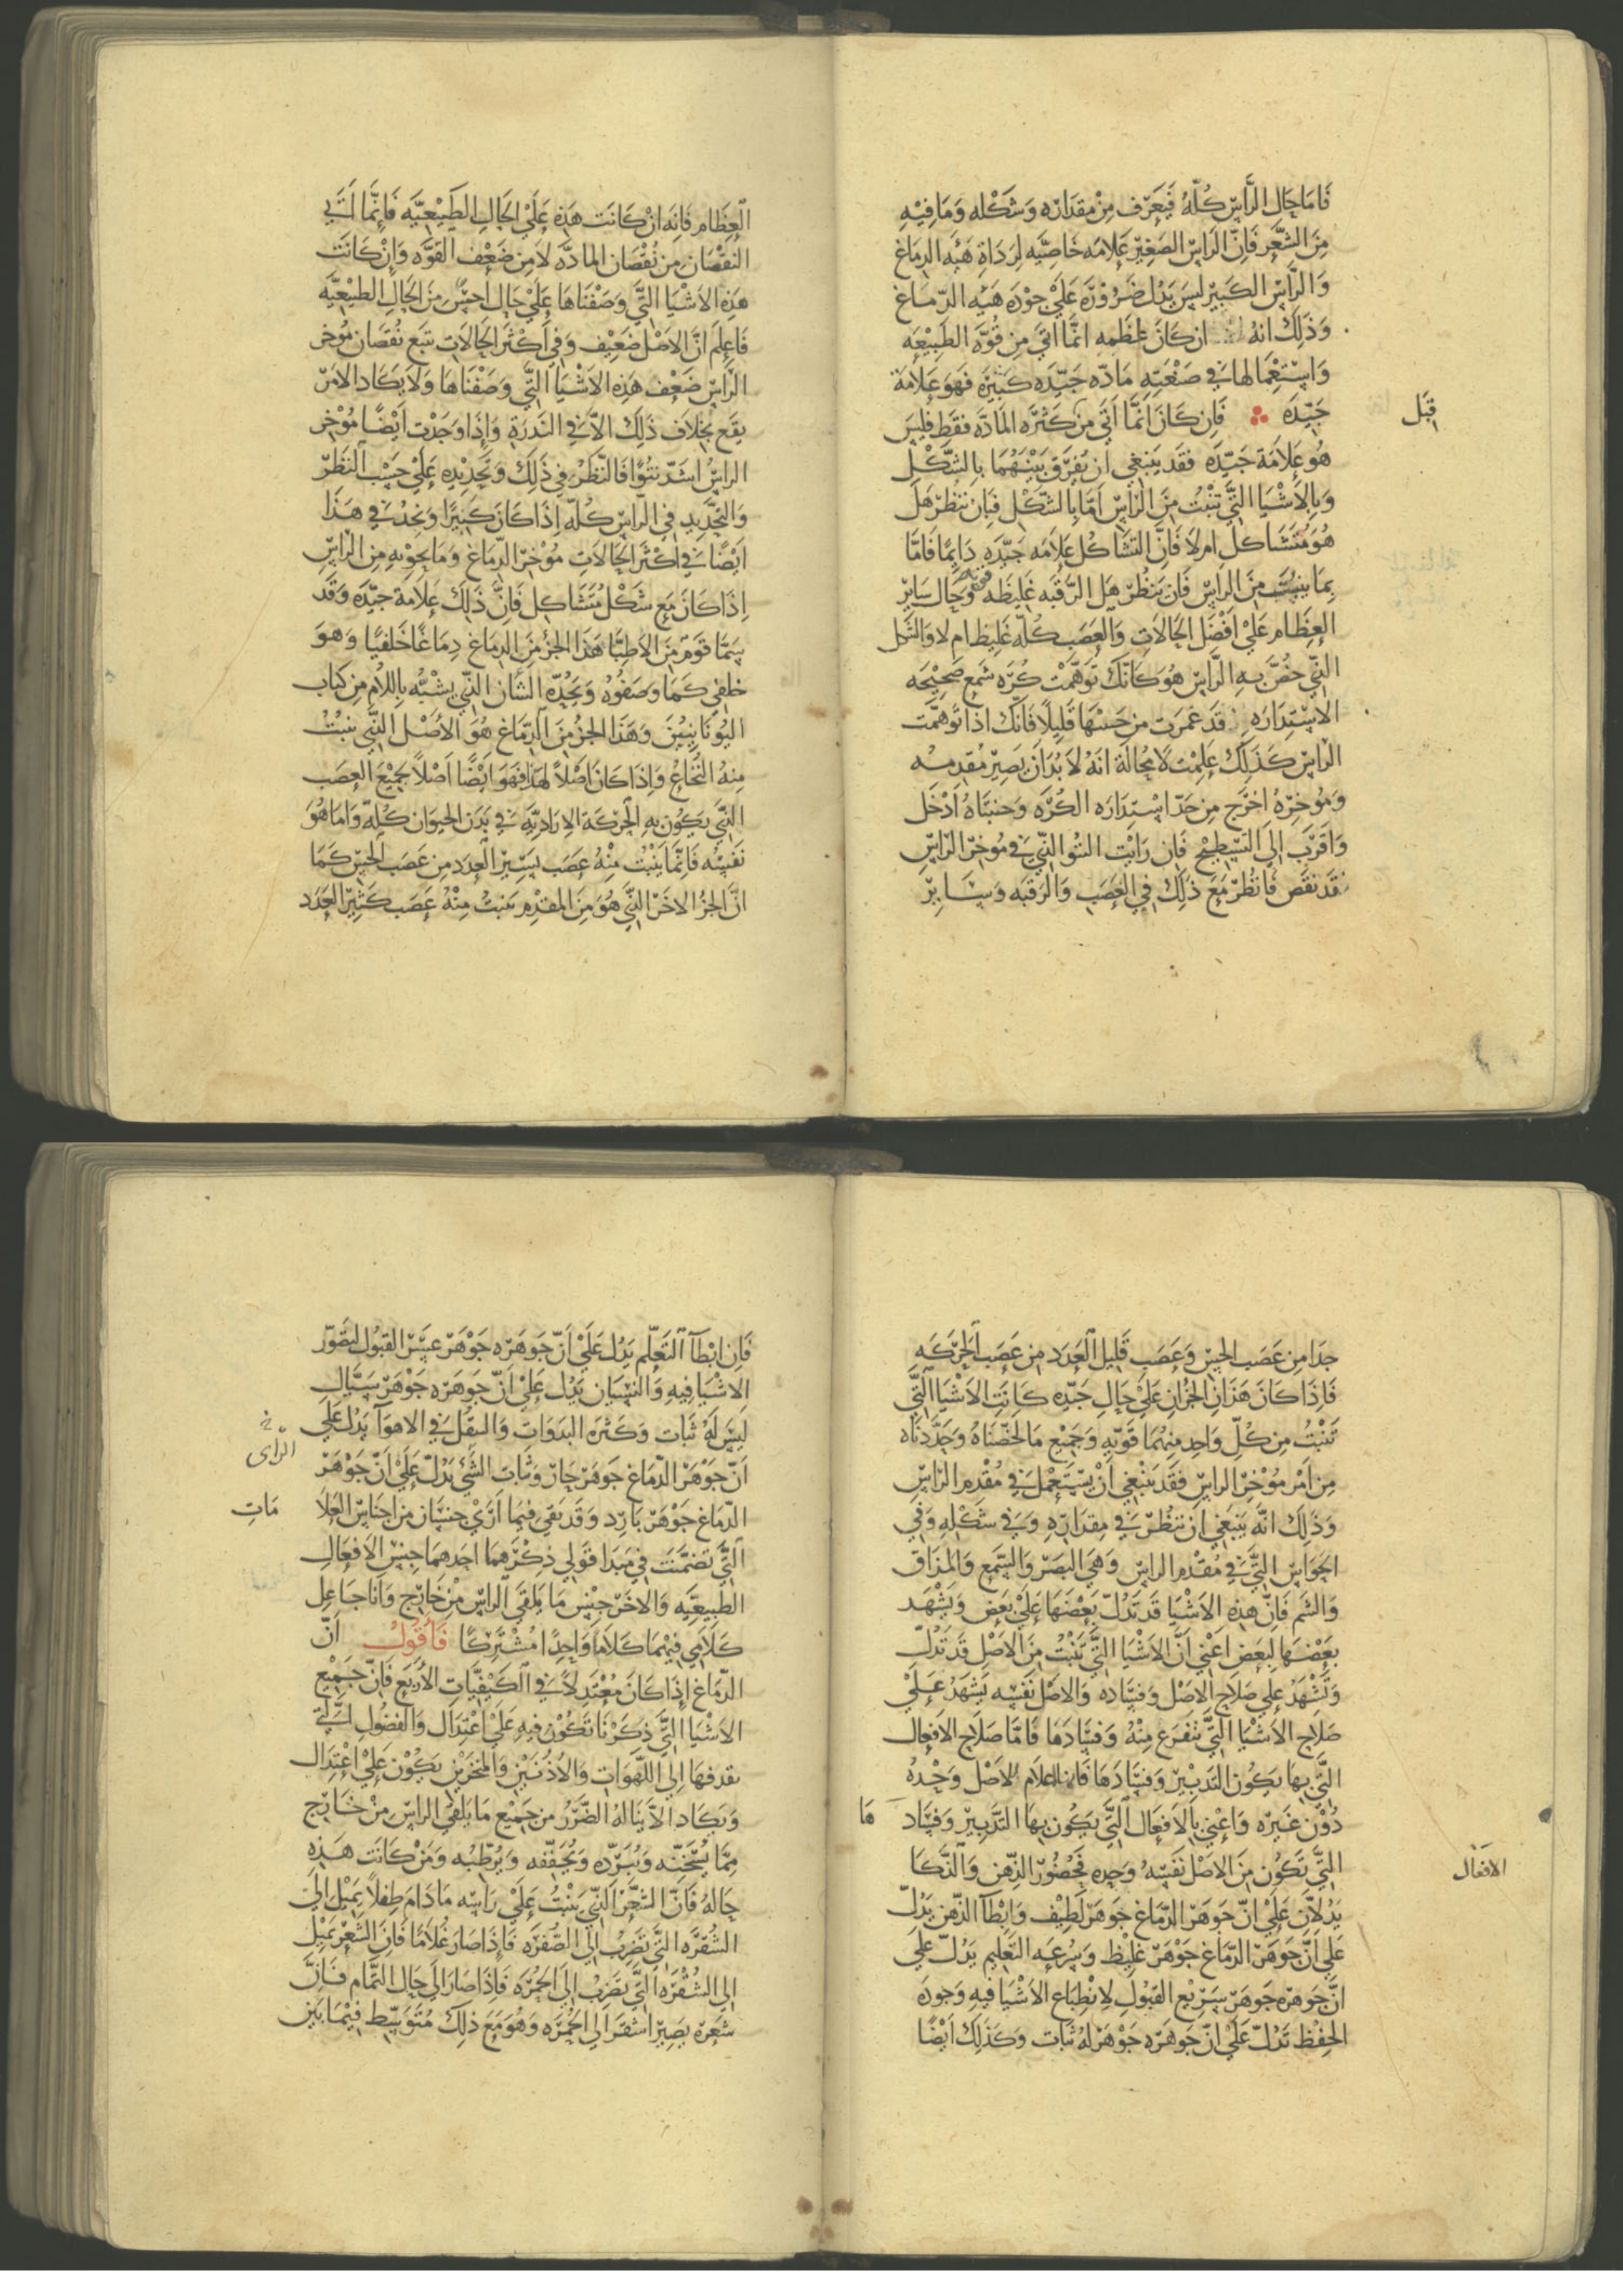 فَامَا حَال الرَّاسِ كُلّهُ فَيُعَرّف مِنْ مِقدَارِه وَشَكْله وَمَا فِيْهِ
مِنَ الشَّعْرِ فَاِنّ الرَاسَ الصَغِيْر عَلامَه خَاصِّيَّه لِرَدَاةِ هَيْه الدِمَاغ
وَالرَّاسَ الكَبِيْر ليسَ يَدُل ضَرُوْرَه عَلَيْ جوْدَه هَيْه الدّمَاغ
وَذَلِكَ انهُ ان كَانَ عِظَمِه انَّمَا اتَي مِن قُوَّه الطَبِيْعَه
قِبَل
وَاسْتِعْمَالهَا في صَنْعَتِهِ مَادّه جَيّدَه كَثِيْرَه فَهوَ عَلامَة
جَيّدَه فَاِن كَانَ انَّمَا اَتَي مِن كَثْرَه المَادَّه فقَطْ فَلَيسَ
هُو عَلَامَة جَيّدَه فَقَد يَنبَغي ان يُفرّق بَيْنَهُمَا بِالشَّكْلِ
وَبِالاَشْيَا التَّي تَنْبُتُ مِنَ الرَاسِ اَمّا بِالشّكْل فَبِان تَنظُرَ هَل
هُوَ مُتَشَاكل اَم لَا فَاِنَّ التَشَاكُل عَلاَمَه جَيّدَه دَايِمًا فَامَّا
بِمَا يَنبُت مِنَ الرَاسِ فَاَن تَنظُرَ هَل الرَّقَبه غَلِيظَه وَحَال سَايِر
العِظَام عَلَيْ اَفْضَل الحَالَاتِ وَالعَصَب كُلّه غَلِيظ ام لَا وَالشَكل
الذّي خُصَّ بِهِ الرَّاسِ هُوَ كَانَّكَ تَوَهّمْت كُرَه شَمع صَحِيْحَه
الاسْتِدَارَه قَد غمَرت مِن جَنبهَا قَلِيلًا فَانَّك اذَا تَوهمّت
الرَاسِ كَذَلِكَ عَلِمْت لَا مُحَالَة انَهُ لَا بُدَ اَن يَصِيْر مُقدمُه
وَمُوخِرّهُ اخرَج مِن حَدّ اسْتِدَارَه الكُرَه وَجنبَتَاهُ ادْخَل
وَاَقرَب الَي التَسْطِيْحِ فَاِن رَايْت النتُو الذّي في مُوخِر الرَاسِ
قَد نَقَص فَانظُر مَعَ ذَلِكَ في العَصَب وَالرَقبَه وَسَايِر
العِظَام فَانَه انْ كَانَت هَذِه عَلَيْ الحَالِ الطَبِيْعِيَّه فَاِنَّمَا اَتَي
النقْصَان مِن نُقْصَان المادَّه لَا مِن ضَعْف القوَّه وَاِنْ كَانَت
هَذِه الاَشْيَا التَّي وَصَفْنَاهَا عَلَيْ حَال اَخسّ مِنَ الحَالِ الطَبيْعيَّه
فَاعلَم انَّ الاَصْل ضَعِيْف وَفي اَكْثَر الحَالَاتِ تَبَع نُقصَان مُوخر
الرَّاسِ ضَعْف هَذِه الاَشْيَا التَّي وَصَفْنَاهَا وَلَا يَكَاد الاَمرَ
يقَع بِخلَاف ذَلِكَ الَّا في النَدرَةِ وَاِذَا وَجَدْت اَيْضًا مُؤْخِر
الراسِ اشَدّ نتُوًا فَالنّظَر في ذَلِكَ وَتَحْدِيْده عَلَي حَسْب النَظَرَ
وَالتَحْدِيد في الرَاسِ كُلّه اِذَا كَانَ كَبِيْرًا وَتجدُ في هَذَا
ايْضًا في اَكْثَر الحَالَاتِ مُؤْخِر الدِّمَاغ وَمَا يَحوْيهِ مِن الرَاسِ
اِذَا كَانَ مَعَ شَكْل مُتَشَاكِل فَاِنَّ ذَلِكَ عَلَامَة جَيّدَه وَقَد
سمَّا قَوَم مِنَ الاَطِبَّا هَذَا الجزُ مِنَ الدِمَاغِ دِمَاغًا خَلفيًا وَهوَ
خلفي كَمَا وَصَفوْهُ وَيَحُدّه الشَان الذّي يشبَّه بِاللاَم مِن كِتَاب
اليُونَانِييْنَ وَهَذَا الجزُ مِنَ الدّمَاغ هُوَ الاَصْل الذَّي يَنبُتُ
مِنهُ النُخَاعُ وَاِذَا كَانَ اَصْلاً لهَذا فَهوَ ايْضًا اَصْلًا لجَمِيْع العصَب
الذَّي يَكُون بِهِ الحَرَكَة الاِرَادِيَّه في بَدَن الحيوَان كُلِّه وَامَا هُوَ
نَفسُه فَاِنَّمَا يَنْبُتُ مِنْهُ عصَب يَسِيْر العَدد مِن عَصَب الحِسّ كَمَا
انّ الجزُ الاخَر الذَّي هُوَ مِنَ المقَدّم ينبُتُ مِنْهُ عَصَب كَثِيْر العَدَد
جدَا مِن عَصَب الحسِّ وَعَصَب قَليل العَدَد مِن عَصَب الحَرَكَه
فَاِذَا كَانَ هَذَان الجُزْان عَلَيْ حَال جَيّده كَانَت الاَشْيَا التَّي
تَنْبُتُ مِن كُلّ وَاحدٍ مِنهُمَا قَويّه وَجَمِيْع مَا لَخصّنَاهُ وَحَدّدنَاه
مِن اَمْر مُؤْخِر الرَاسِ فقَد يَنْبَغي اَنْ يسْتَعْمِل في مُقْدِم الرَاسِ
وَذَلكَ انّه يَنبَغي ان تنظُر في مِقدَارِهِ وَفي شَكْلِهِ وَفي
الحوَاسّ التَّي في مُقْدم الراسِ وَهِيَ البصَر وَالسَّمع وَالمذَاق
وَالشَم فَاِنّ هَذِه الاَشْيَا قَد تَدُلّ بَعْضهَا عَلَيْ بَعض وَيَشْهَد
بعَضهَا لِبَعض اَعْني اَنَّ الاَشْيَا التَّي تَنْبُتُ مِنَ الاَصْلِ قَد تَدُلّ
وَتَشْهَدُ عَلي صَلَاح الاَصْل وَفسَاده وَالاَصْل نَفسُه يَشهَدُ عَلَيْ
صَلَاح الاَشْيَا التَّي تتفَرَع مِنْهُ وَفسَادهَا فَامَّا صَلَاح الاَفعَال
التَّي بِهَا يَكُون التَدبيْر وَفسَادهَا فَانمَا اعلَام الاَصْل وَحْدهُ
دُوْن غَيْره وَاَعْني بِالاَفعَال التَّي يَكُون بِهَا التَدْبِيرْ وَفسَاد هَا
الافعَال
التّي تَكُون مِنَ الاَصْل نَفسُهُ وَحده فَحُضُورَ الذّهن وَالذّكَا
يَدُلاَّن عَلَيْ انّ جَوهَر الدّمَاغ جَوهَر لَطِيْف وَابْطآ الذّهن يَدُلّ
عَلي اَنّ جَوهَر الدّمَاغ جَوْهَر غَلِيظ وَسُرعَه التَعلِيم يَدُلّ عَلَي
انَّ جَوهرَه جوَهَر سَرِيْع القبُولِ لِانْطِبَاع الاَشْيَا فيهِ وَجودَه
الحِفْظ تَدُلّ عَلَيْ انّ جَوهرَه جَوْهَر لهُ ثبَات وَكَذَلكَ اَيْضًا
فَاِن ابْطآ التَعَلّم يَدُل عَلَيْ اَنّ جَوهَرَه جَوْهَر عَسِر القبُول لتصَوّر
الاَشْيَا فِيهِ وَالنسْيَان يَدُل عَلَيْ اَنّ جَوهَرَه جَوْهَر سَيّال
ليسَ لَهُ ثَبات وَكَثرَه البدَوَات وَالتنقّل في الاهوآ يَدُل عَلَي
الرّاى خ
اَنّ جَوْهَر الدّمَاغ جَوهَر حَارّ وَثبَات الشّئ يَدُلّ عَلَيْ اَنّ جَوْهَر
الدّمَاغ جَوْهَر بَارِد وَقَد بَقي فيمَا اَرَيْ جنسَان مِن اجنَاس العَلَا مَاتِ
التَّي تضَمَّنت في مَبدَا قَولي ذِكْرهمَا احَدهمَا جِنس الاَفعَال
الطَبِيعيَّه وَالاخَر جِنْس مَا يَلقَي الرَاسَ مِنْ خَارِج وَاَنَا جَاعِل
كَلاَمي فيْهمَا كَلَامًا وَاحِدًا مُشْتَركًا فَاَقُولُ انّ
الدّمَاغ اِذَا كَانَ مُعْتَدِلاً في الكَيْفيَّاتِ الاَرْبَع فَاِنّ جَمِيْع
الاَشْيَا التَّي ذكَرْنَا تَكُوْن فيهِ عَلَيْ اعْتِدَال وَالفضُول التَّي
يقدفهَا اِلي اللّهَوَاتِ وَالاُذُنَيْنِ وَالمنخَرَيْن يَكُوْن عَلَيْ اعْتِدَال
وَيَكَاد الَّا ينَالهُ الضَرَرُ مِن جَمِيْع مَا يَلقَي الرَاسَ مِنْ خَارِج
مِمَّا يُسَخِنّه وَيُبَرّده وَيُجَفّفه وَيُرَطّبُه وَمَنْ كَانَت هَذِه
حَالهُ فَاَنَّ الشَعْر الذّي يَنْبُتُ عَلَيْ رَاسِه مَا دَامَ طِفلاً يَمِيْل اِلَي
الشُقْرَه التَّي تَضرِبُ اِلَي الصُّفرَه فَاِذَا صَار غُلَامًا فَاِنّ الشَعْر يَمِيْل
اِلي الشُقْرَه التَّي تَضرِبُ الَي الحُمْرَه فَاِذَا صَارَ اِلَي حَال التَّمَام فَاِنَّ
شعَرَه يَصِيْر اشقَر الَي الحُمْرَه وَهُوَ مَعَ ذَلِكَ مُتَوَسِّط فِيْمَا بَيْن